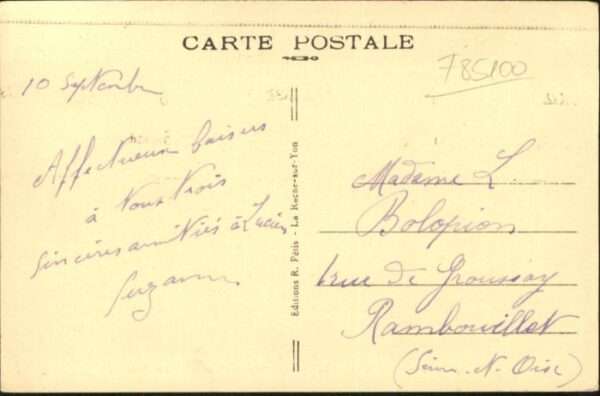 CARTE POSTALE
78500
10 Septembre
Affectueux baisers
à vous trois
Sincères amitiés à Lucien
Suzanne
Editions R. Fétis - La Roche-sur-Yon
Madame L
Bolopion
rue de Groussay
Rambouillet
(Seine-N-Oise)